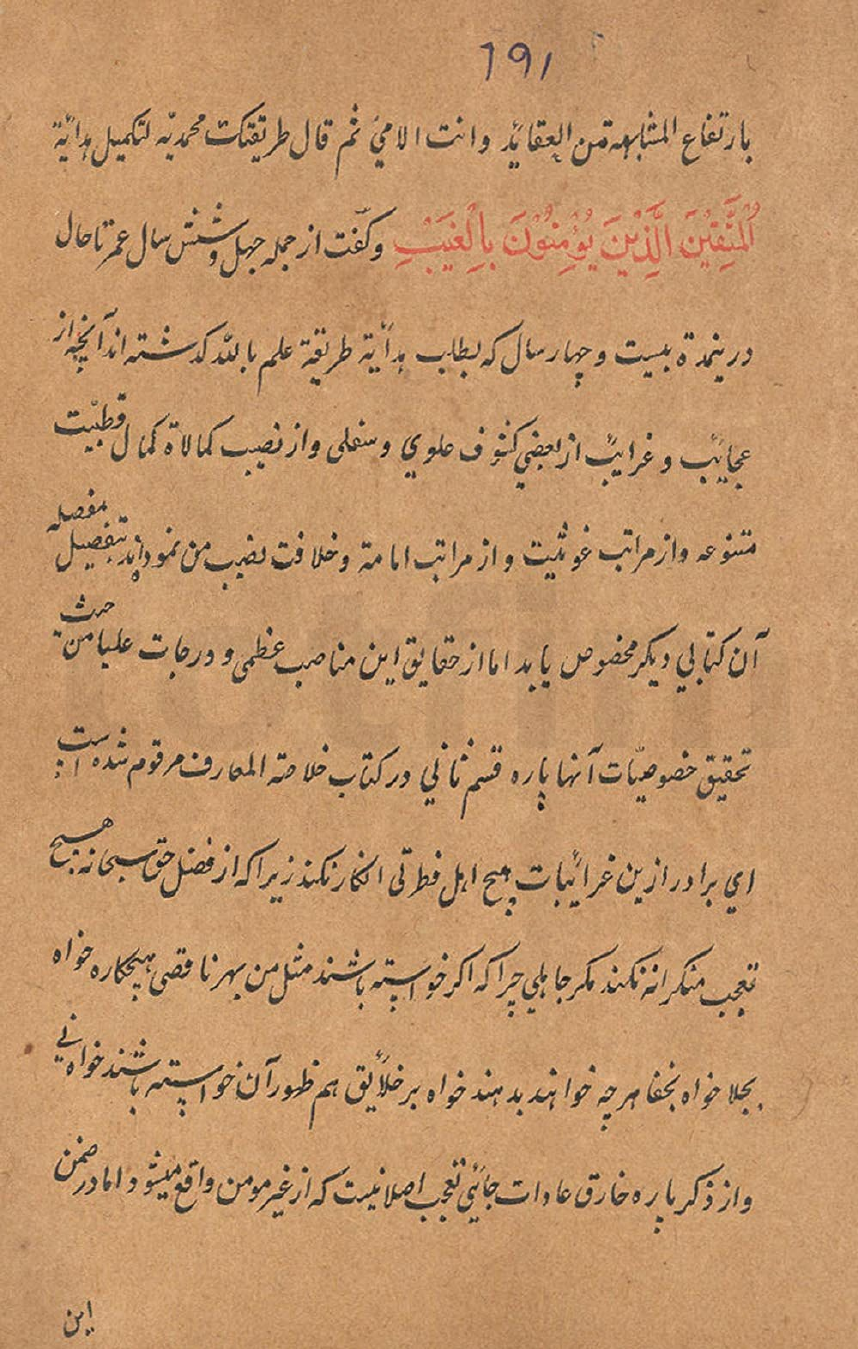 ۱۹۱
بارتفاع المشابهة من العقائد وانت الامي ثم قال طريقتك محمديه لتكميل هداية
الْمُتَّقِيْنَ الَّذِيْنَ يُؤْمِنُوْنَ بِالْغَيْبِ وكفت از جمله چهل وشش سال عمر تا حال
درينمدة بيست و چهار سال كه بطلب هدآية طريقة علم بالله كدشته اند آنچه از
عجائب و غرايب از بعضي كشوف علوي و سفلى واز نصيب كمالاة كمال قطبيّت
متنوعه واز مراتب غوثيت و از مراتب امامة و خلافت نصيب من نموداند بتفصيل مفصله
آن كتابي ديكر مخصوص يابد اما از حقايق اين مناصب عظمى و درجات عليا من حيث
تحقيق خصوصيّات آنها پاره قسم ثاني در كتاب خلاصه المعارف مرقوم شده است
اي برادر ازين غرائبات هيچ اهل فطرتى انكار نكند زيرا كه از فضل حق سبحانه هيچ
تعجب منكرانه نكند مكر جاهلي چرا كه اكر خواسته باشند مثل من بهر ناقصى هيچكاره خواه
بجلا خواه بخفا هر چه خوانند بدهند خواه بر خلآيق هم ظهور آن خواسته باشند خواه ني
واز ذكر پاره خارق عادات جائي تعجب اصلا نيست كه از غير مومن واقع ميشود اما در ضمن
اين